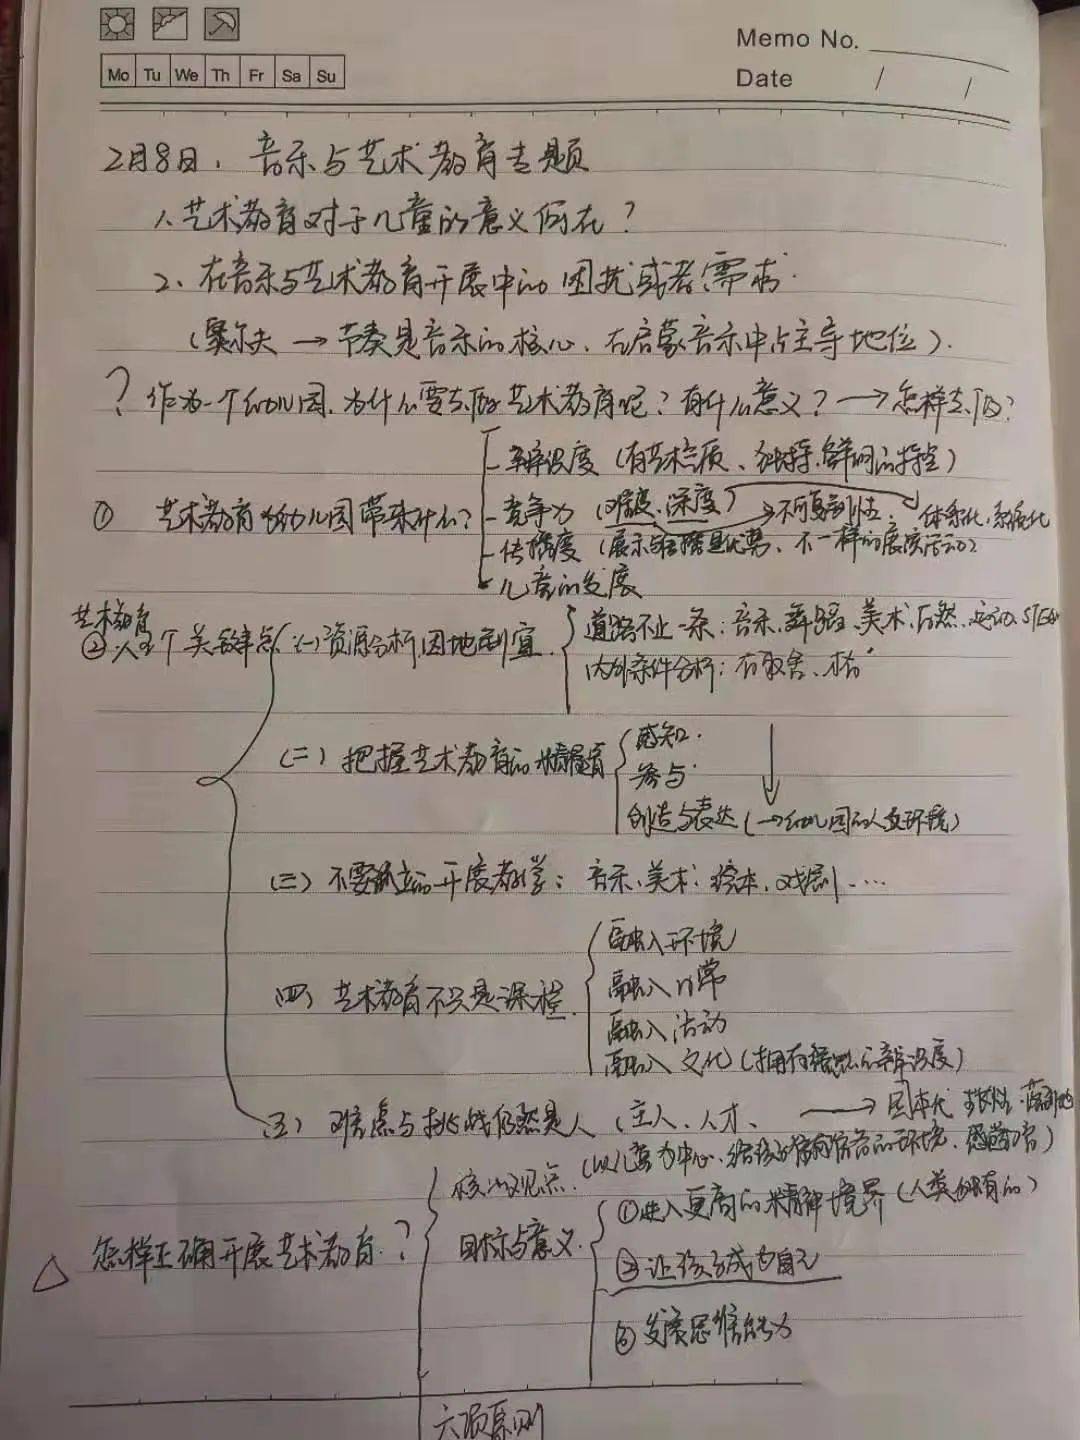 Memo No.
Mo Tu We Th Fr Sa Su
Date / /
2月8日. 音乐与艺术教育专题
1、艺术教育对于儿童的意义何在?
2、在音乐与艺术教育开展中的困扰或者需求.
(奥尔夫 → 节奏是音乐的核心、在启蒙音乐中占主导地位).
? 作为一个幼儿园,为什么要去做艺术教育呢? 有什么意义? → 怎样去做?
辨识度 (有艺术气质、独特、鲜明的特色)
① 艺术教育给幼儿园带来什么? 竞争力 (难度、深度) → 不可复制性. 体系化、系统化
传播度 (展示与传播是优势、不一样的展演活动)
儿童的发展
艺术教育
② 五个关键点 (一) 资源分析,因地制宜.
道路不止一条: 音乐、舞蹈、美术、自然、运动、
内外条件分析: 有取舍、
(二) 把握艺术教育的精髓
感知.
参与.
创造与表达 (→幼儿园的人文环境)
(三) 不要孤立的开展教学: 音乐、美术、绘本、戏剧....
融入环境
(四) 艺术教育不只是课程. 融入日常
融入活动
融入文化 (拥有 辨识度)
(五) 难点与挑战仍然是人 (主人、人才、 → 园本化
核心观点. (以儿童为中心、给孩子 的环境、
△ 怎样正确开展艺术教育.?
目标与意义. ①进入更高的精神境界 (人类独有的)
②让孩子成为自己
③发展思维能力
六项原则